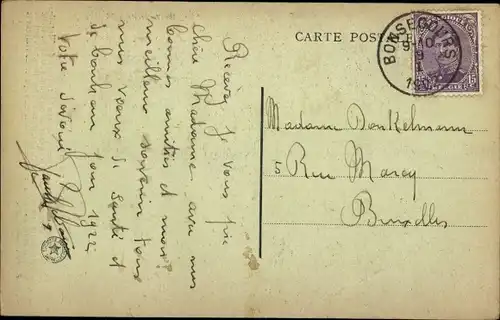 CARTE POSTALE
BONSECOURS
9-10
15
Recevez je vous prie
chère Madame avec mes
bonnes amitiés et mon
meilleur souvenir tous
mes voeux de santé et
de bonheur pour 1922
Votre dévoué
Madame Donkelmann
5 Rue Marcq
Bruxelles